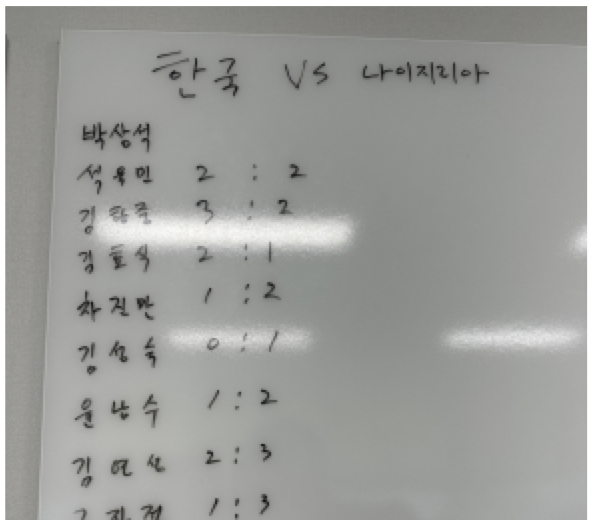 한국 VS 나이지리아
박상석
석용민 2 : 2
3 : 2
김효식 2 : 1
차진만 1 : 2
김성숙 0 : 1
윤남수 1 : 2
김연산 2 : 3
1 : 3